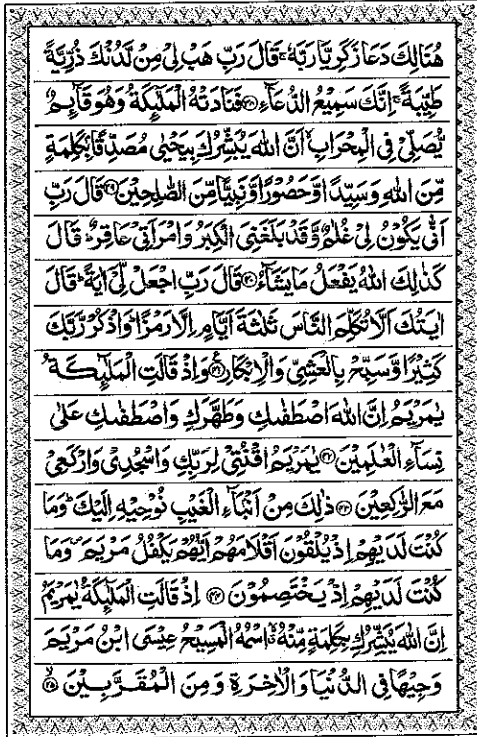 هُنَالِكَ دَعَا زَكَرِيَّا رَبَّهٗ ۚ قَالَ رَبِّ هَبْ لِیْ مِنْ لَّدُنْكَ ذُرِّیَّةً
طَیِّبَةً ۚ اِنَّكَ سَمِیْعُ الدُّعَآءِ ﴿۳۸﴾ فَنَادَتْهُ الْمَلٰٓىِٕكَةُ وَهُوَ قَآىِٕمٌ
یُّصَلِّیْ فِی الْمِحْرَابِ ۙ اَنَّ اللّٰهَ یُبَشِّرُكَ بِیَحْیٰی مُصَدِّقًۢا بِكَلِمَةٍ
مِّنَ اللّٰهِ وَسَیِّدًا وَّحَصُوْرًا وَّنَبِیًّا مِّنَ الصّٰلِحِیْنَ ﴿۳۹﴾ قَالَ رَبِّ
اَنّٰی یَكُوْنُ لِیْ غُلٰمٌ وَّقَدْ بَلَغَنِیَ الْكِبَرُ وَامْرَاَتِیْ عَاقِرٌ ؕ قَالَ
كَذٰلِكَ اللّٰهُ یَفْعَلُ مَا یَشَآءُ ﴿۴۰﴾ قَالَ رَبِّ اجْعَلْ لِّیْۤ اٰیَةً ؕ قَالَ
اٰیَتُكَ اَلَّا تُكَلِّمَ النَّاسَ ثَلٰثَةَ اَیَّامٍ اِلَّا رَمْزًا ؕ وَاذْكُرْ رَّبَّكَ
كَثِیْرًا وَّسَبِّحْ بِالْعَشِیِّ وَالْاِبْكَارِ ﴿۴۱﴾ وَاِذْ قَالَتِ الْمَلٰٓىِٕكَةُ
یٰمَرْیَمُ اِنَّ اللّٰهَ اصْطَفٰىكِ وَطَهَّرَكِ وَاصْطَفٰىكِ عَلٰی
نِسَآءِ الْعٰلَمِیْنَ ﴿۴۲﴾ یٰمَرْیَمُ اقْنُتِیْ لِرَبِّكِ وَاسْجُدِیْ وَارْكَعِیْ
مَعَ الرّٰكِعِیْنَ ﴿۴۳﴾ ذٰلِكَ مِنْ اَنْۢبَآءِ الْغَیْبِ نُوْحِیْهِ اِلَیْكَ ؕ وَمَا
كُنْتَ لَدَیْهِمْ اِذْ یُلْقُوْنَ اَقْلَامَهُمْ اَیُّهُمْ یَكْفُلُ مَرْیَمَ ۪ وَمَا
كُنْتَ لَدَیْهِمْ اِذْ یَخْتَصِمُوْنَ ﴿۴۴﴾ اِذْ قَالَتِ الْمَلٰٓىِٕكَةُ یٰمَرْیَمُ
اِنَّ اللّٰهَ یُبَشِّرُكِ بِكَلِمَةٍ مِّنْهُ ۖۗ اسْمُهُ الْمَسِیْحُ عِیْسَی ابْنُ مَرْیَمَ
وَجِیْهًا فِی الدُّنْیَا وَالْاٰخِرَةِ وَمِنَ الْمُقَرَّبِیْنَ ﴿۴۵﴾ ۙ